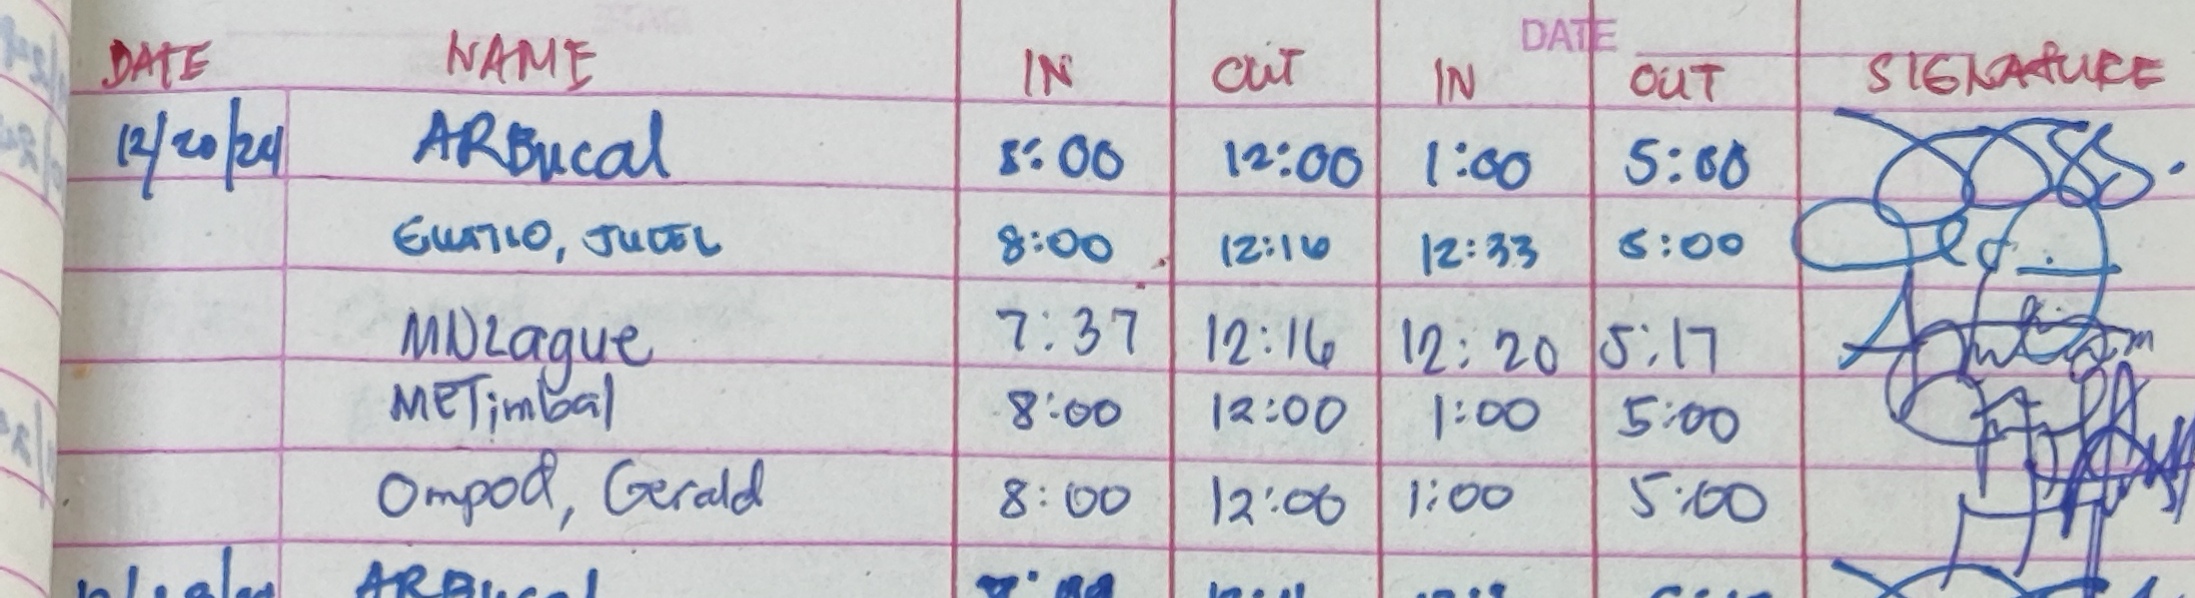 DATE
DATE NAME IN OUT IN OUT SIGNATURE
12/20/24 ARBucal 8:00 12:00 1:00 5:00
8:00 12:16 12:33 5:00
MNZague 7:37 12:16 12:20 5:17
METimbal 8:00 12:00 1:00 5:00
Ompod, Gerald 8:00 12:00 1:00 5:00
ARBucal